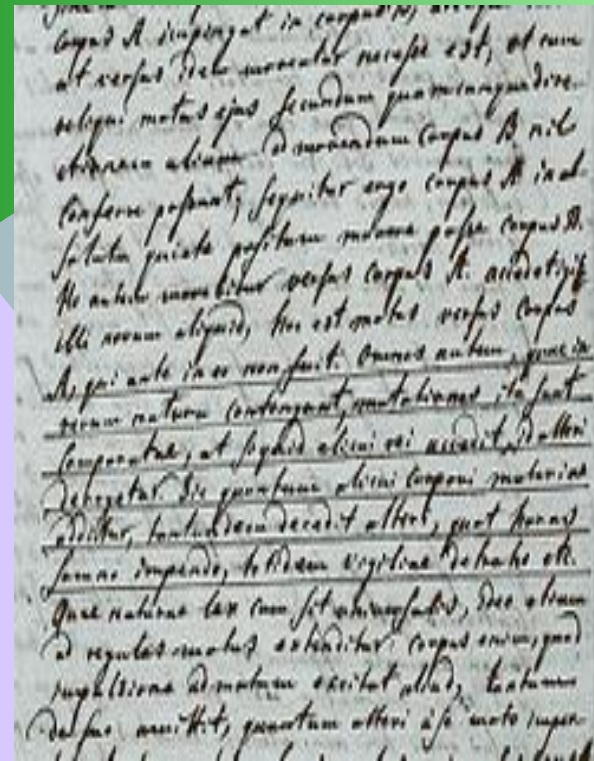 corpus A impingat in corpus B,
corpus A impingat in corpus
at versus idem moveatur necesse est, et cum
reliqui motus ejus secundum quamcunque dire-
ctionem aliam ad movendum corpus B nil
conferre possunt; sequitur ergo corpus A in ab-
soluta quiete positum movere posse corpus B.
Hoc autem movebitur versus corpus A. accedet igit
illi novum aliquid, hoc est motus versus corpus
A, qui ante in eo non fuit. Omnes autem, quae in
rerum natura contingunt, mutationes ita sunt
comparatae, ut siquid alicui rei accedit, id alteri
derogetur. Sic quantum alicui corpori materiae
additur, tantundem decedit alteri, quot horas
somno impendo, totidem vigiliae detraho etc.
Quae naturae lex cum sit universalis, ideo etiam
ad regulas motus extenditur: corpus enim, quod
impulsione ad motum excitat aliud, tantum
de suo amittit, quantum alteri a se moto imper-